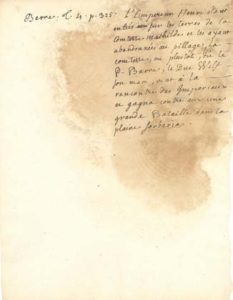 Barre, t. 4. p. 325. L'Empereur Henri étant
entré sur les terres de la
Comtesse Mathilde et les ayant
abandonnées au pillage, la
comtesse, ou plustot dit le
P. Barre, le Duc Welf
son mari, mit à la
rencontre des Imperiaux
et gagna contre eux une
grande Bataille dans la
plaine